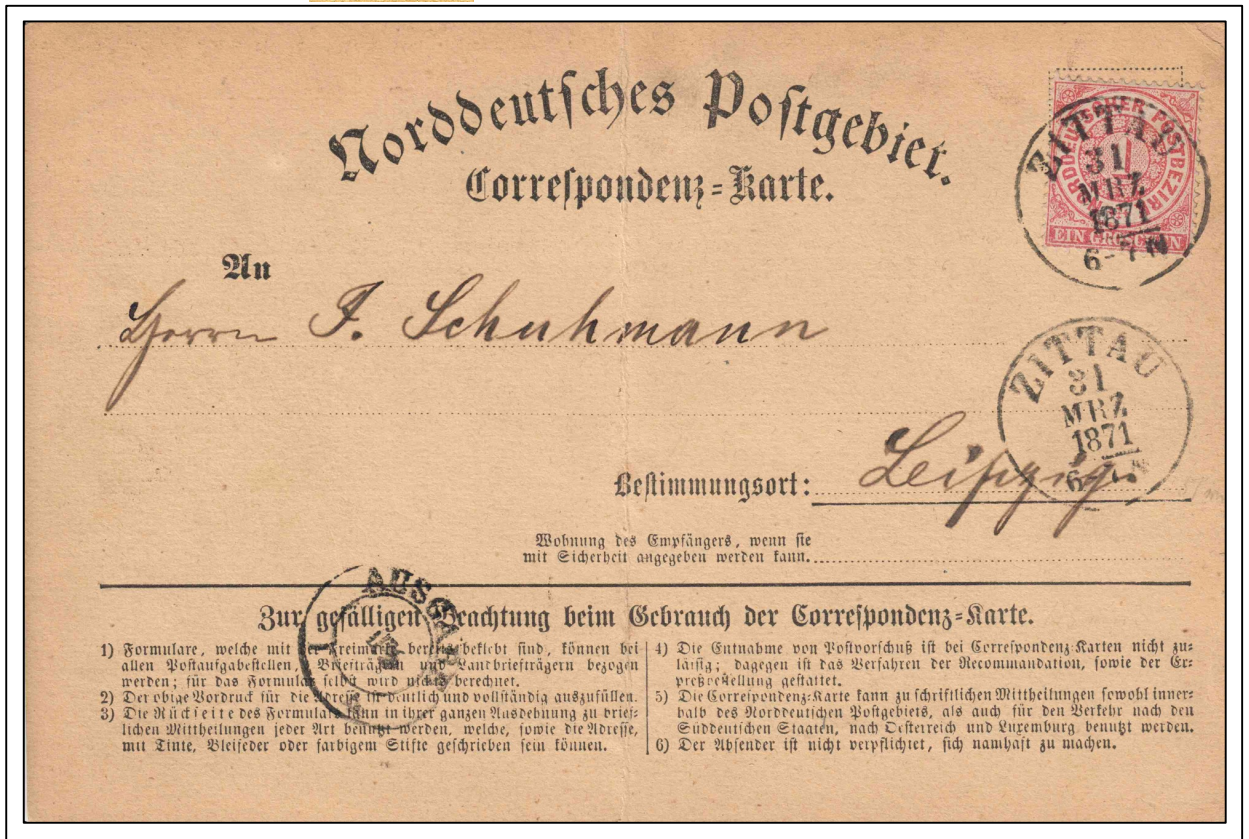 Norddeutsches Postgebiet.
Correspondenz-Karte.
NORDDEUTSCHER POSTBEZIRK
1
EIN GROSCHEN
ZITTAU
31
MRZ
1871
6-7 N
An
Herrn F. Schuhmann
ZITTAU
31
MRZ
1871
6-7 N
Bestimmungsort: Leipzig.
Wohnung des Empfängers, wenn sie
mit Sicherheit angegeben werden kann.
AUSGABE
1
Zur gefälligen Beachtung beim Gebrauch der Correspondenz-Karte.
1) Formulare, welche mit Freimarke bereits beklebt sind, können bei
allen Postaufgabestellen, Briefträgern und Landbriefträgern bezogen
werden; für das Formular selbst wird nichts berechnet.
2) Der obige Vordruck für die Adresse ist deutlich und vollständig auszufüllen.
3) Die Rückseite des Formulars kann in ihrer ganzen Ausdehnung zu brief-
lichen Mittheilungen jeder Art benutzt werden, welche, sowie die Adresse,
mit Tinte, Bleifeder oder farbigem Stifte geschrieben sein können.
4) Die Entnahme von Postvorschuß ist bei Correspondenz-Karten nicht zu-
lässig; dagegen ist das Verfahren der Recommandation, sowie der Ex-
preßbestellung gestattet.
5) Die Correspondenz-Karte kann zu schriftlichen Mittheilungen sowohl inner-
halb des Norddeutschen Postgebiets, als auch für den Verkehr nach den
Süddeutschen Staaten, nach Oesterreich und Luxemburg benutzt werden.
6) Der Absender ist nicht verpflichtet, sich namhaft zu machen.